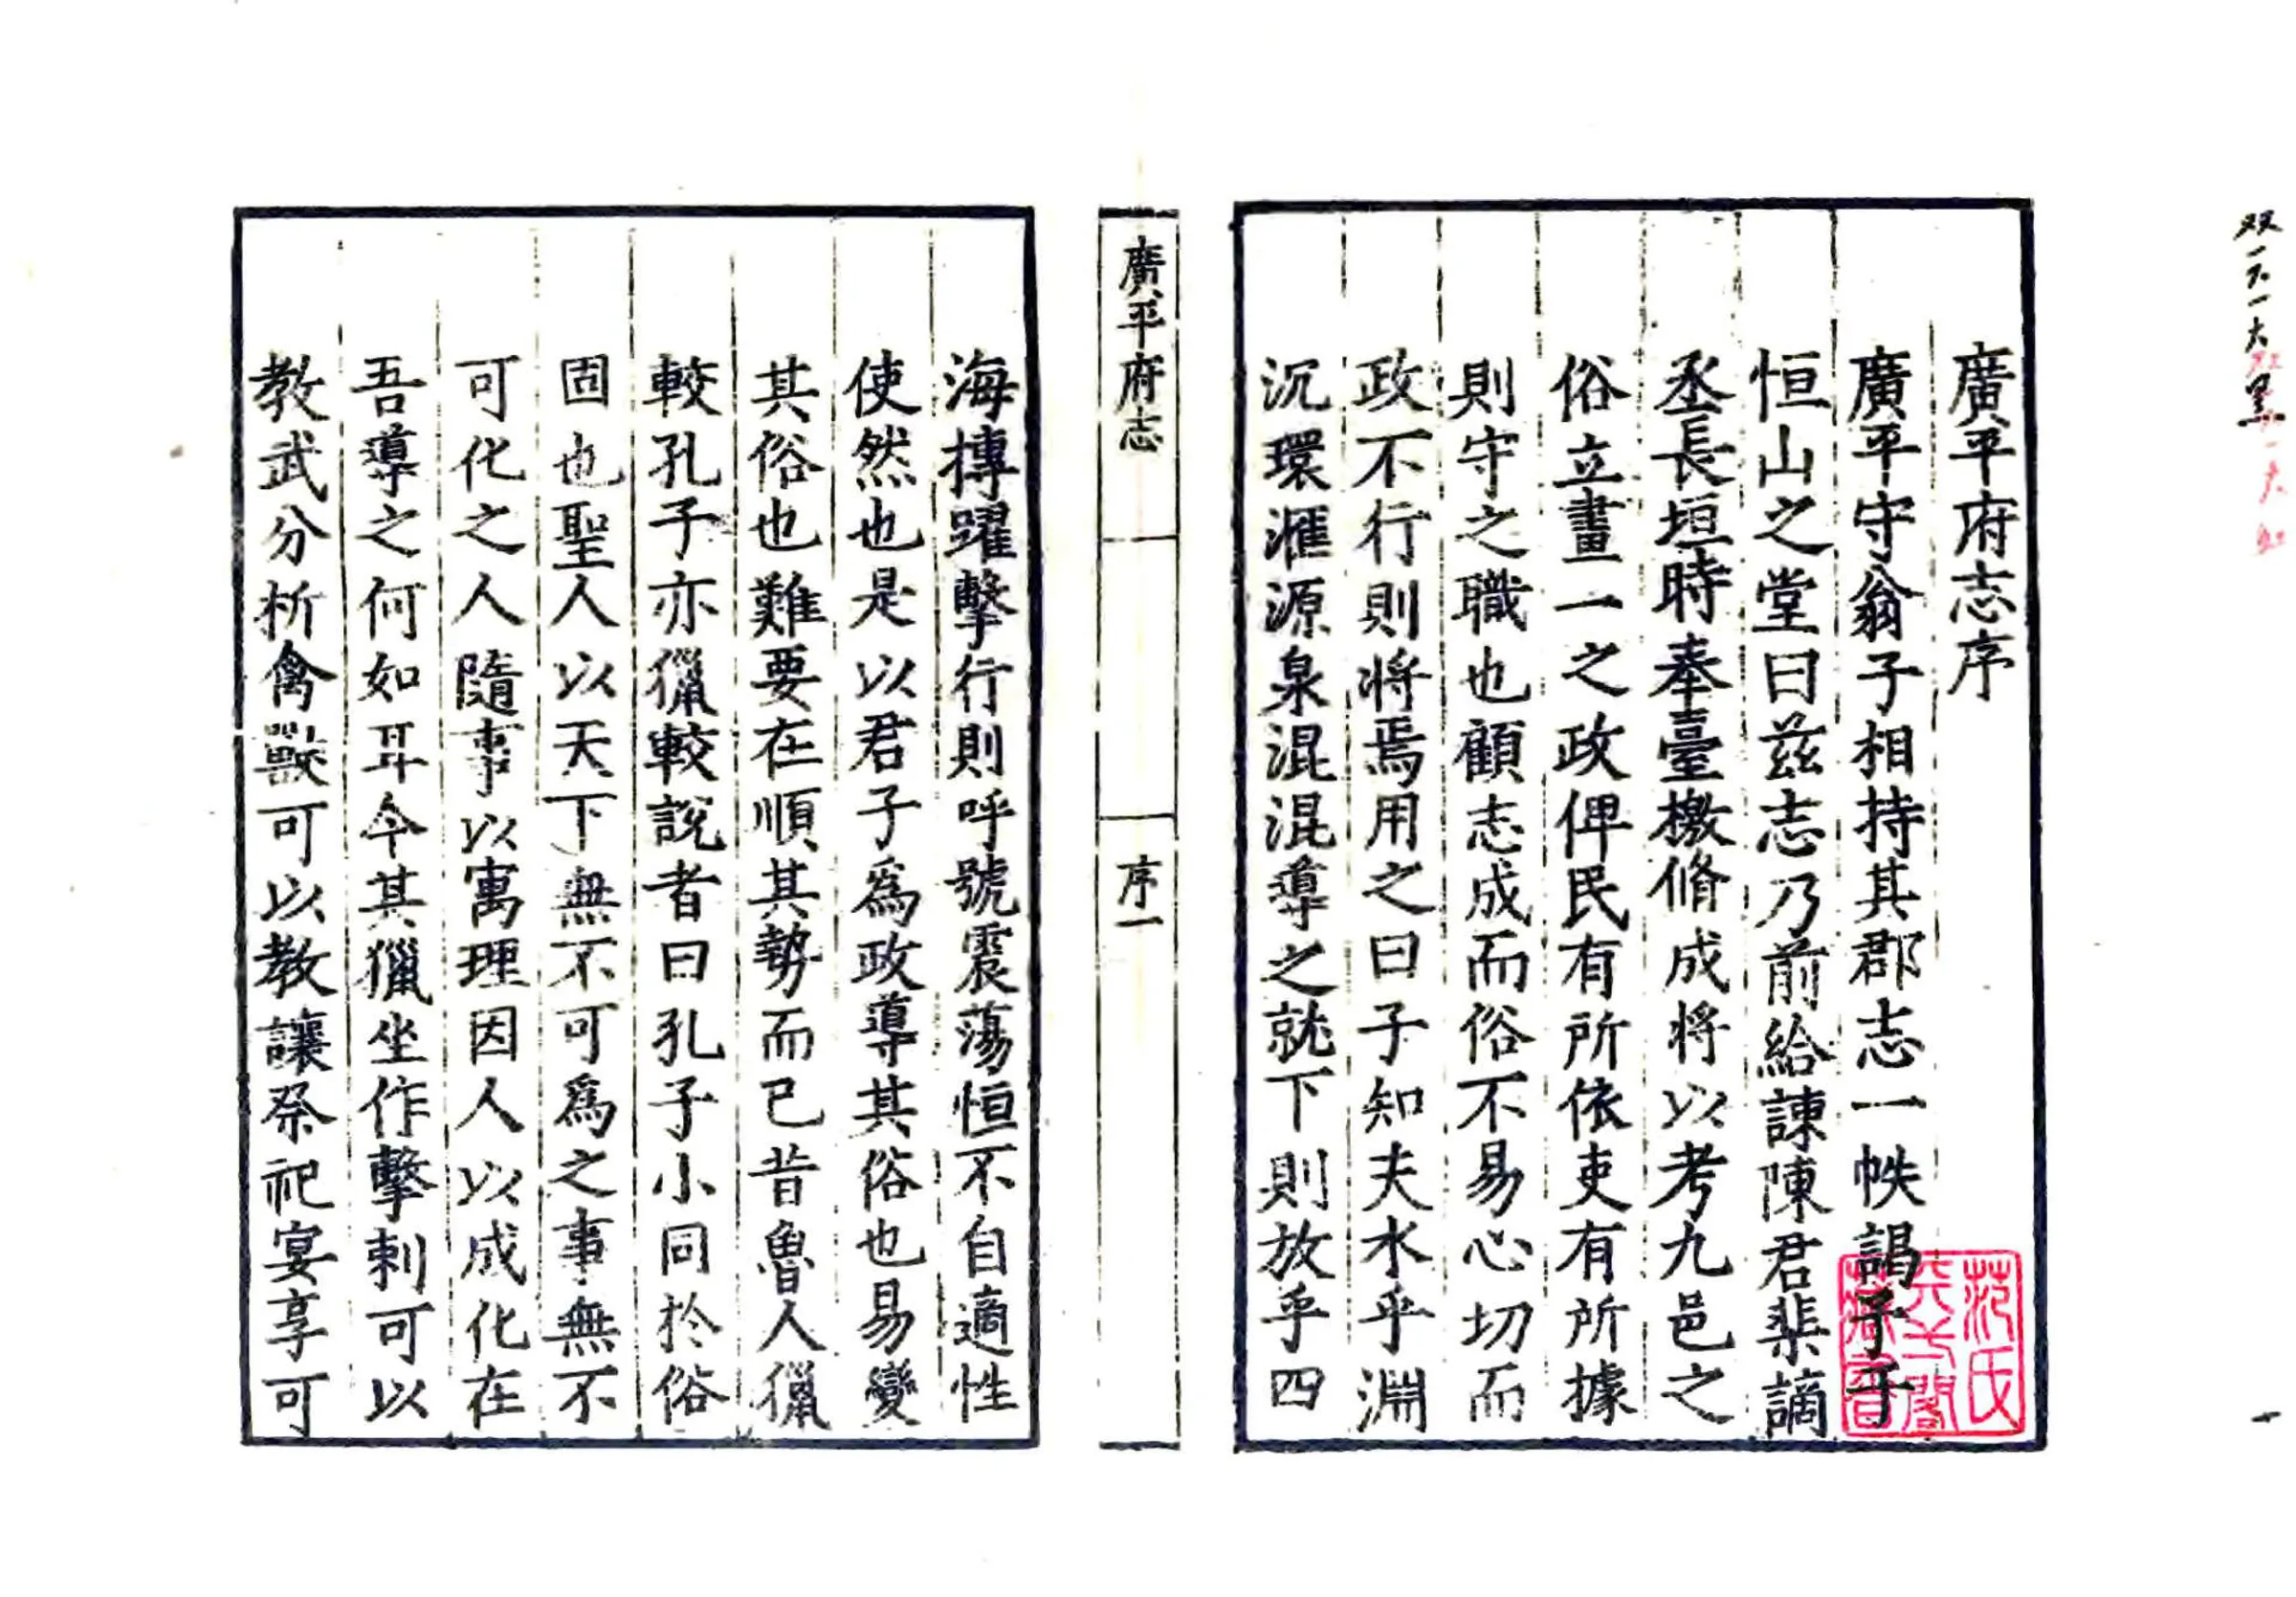 廣平府志序
廣平守翁子相持其郡志一帙謁予于
恒山之堂曰兹志乃前給諫陳君棐謫
丞長垣時奉臺檄脩成將以考九邑之
俗立畫一之政俾民有所依吏有所據
則守之職也顧志成而俗不易心切而
政不行則將焉用之曰子知夫水乎淵
沉環滙源泉混混導之就下則放乎四
廣平府志
序一
海摶躍擊行則呼號震蕩恒不自適性
使然也是以君子爲政導其俗也易變
其俗也難要在順其勢而已昔魯人獵
較孔子亦獵較說者曰孔子小同於俗
固也聖人以天下無不可爲之事無不
可化之人隨事以寓理因人以成化在
吾導之何如耳今其獵坐作擊刺可以
教武分析禽獸可以教讓祭祀宴享可
范氏
天一閣
藏書